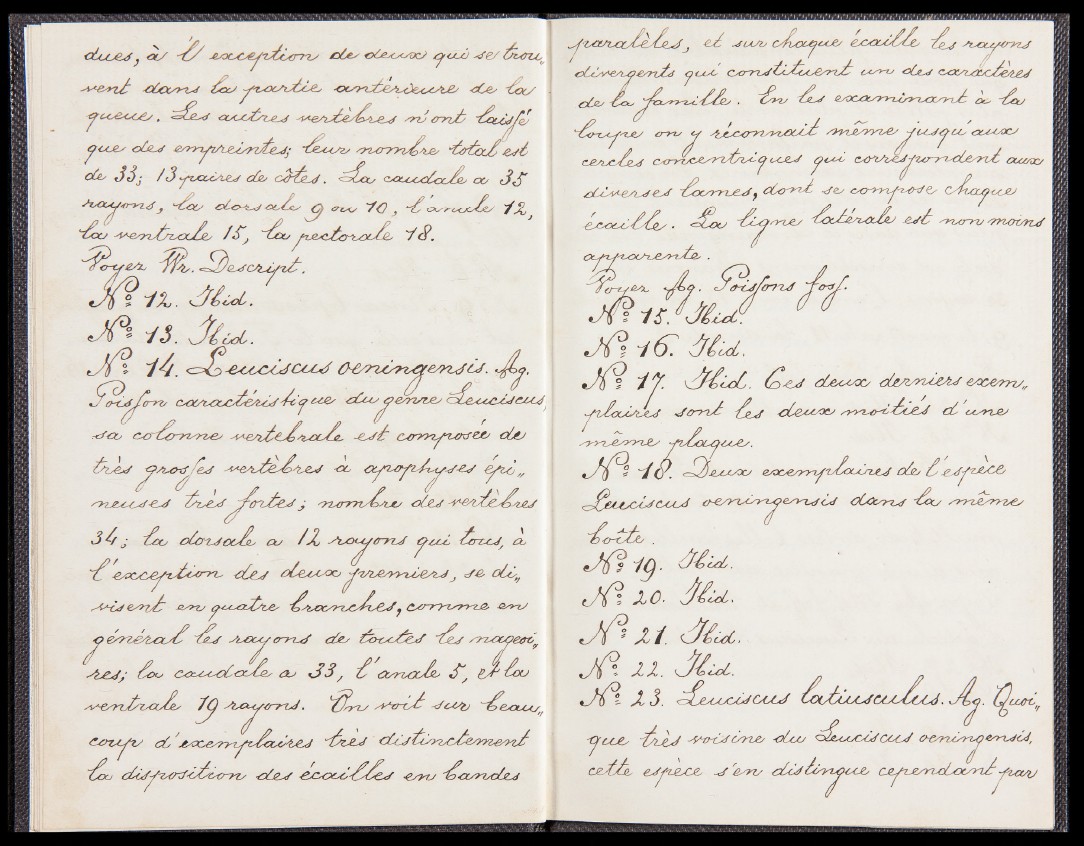 dues, à l'exception de deux qui se trou„
vent dans la partie antérieure de la
queue. Les autres vertèbres n'ont laissé
que des empreintes; leur nombre total est
de 33; 13 paires de côtes. La caudale a 35
rayons, la dorsale 9 ou 10, l'anale 12,
la ventrale 15, la pectorale 18.
Voyez Wr. Descript.
Nº 12. Ibid.
Nº 13. Ibid.
Nº 14. Leuciscus oeningensis. Ag.
Poisson caractéristique du genre Leuciscus,
sa colonne vertebrale est composée de
très grosses vertèbres à apophyses épi„
neuses très fortes; nombre des vertèbres
34; la dorsale a 12 rayons qui tous, à
l'exception des deux premiers, se di„
visent en quatre branches, comme en
général les rayons de toutes les nageoi„
res; la caudale a 33, l'anale 5, et la
ventrale 19 rayons. On voit sur beau„
coup d'exemplaires très distinctement
la disposition des écailles en bandes
paralèles, et sur chaque écaille les rayons
divergents qui constituent un des caractères
de la famille. En les examinant à la
loupe on y réconnait même jusqu'aux
cercles concentriques qui correspondent aux
diverses lames, dont se compose chaque
écaille. La ligne latérale est non moins
apparente.
Voyez Ag. Poissons foss.
Nº 15. Ibid.
Nº 16. Ibid.
Nº 17. Ibid. Ces deux derniers exem„
plaires sont les deux moitiés d'une
même plaque.
Nº 18. Deux exemplaires de l'espèce
Leuciscus oeningensis dans la même
boîte.
Nº 19. Ibid.
Nº 20. Ibid.
Nº 21. Ibid.
Nº 22. Ibid.
Nº 23. Leuciscus latiusculus. Ag. Quoi„
que très voisine du Leuciscus oeningensis,
cette espèce s'en distingue cependant par